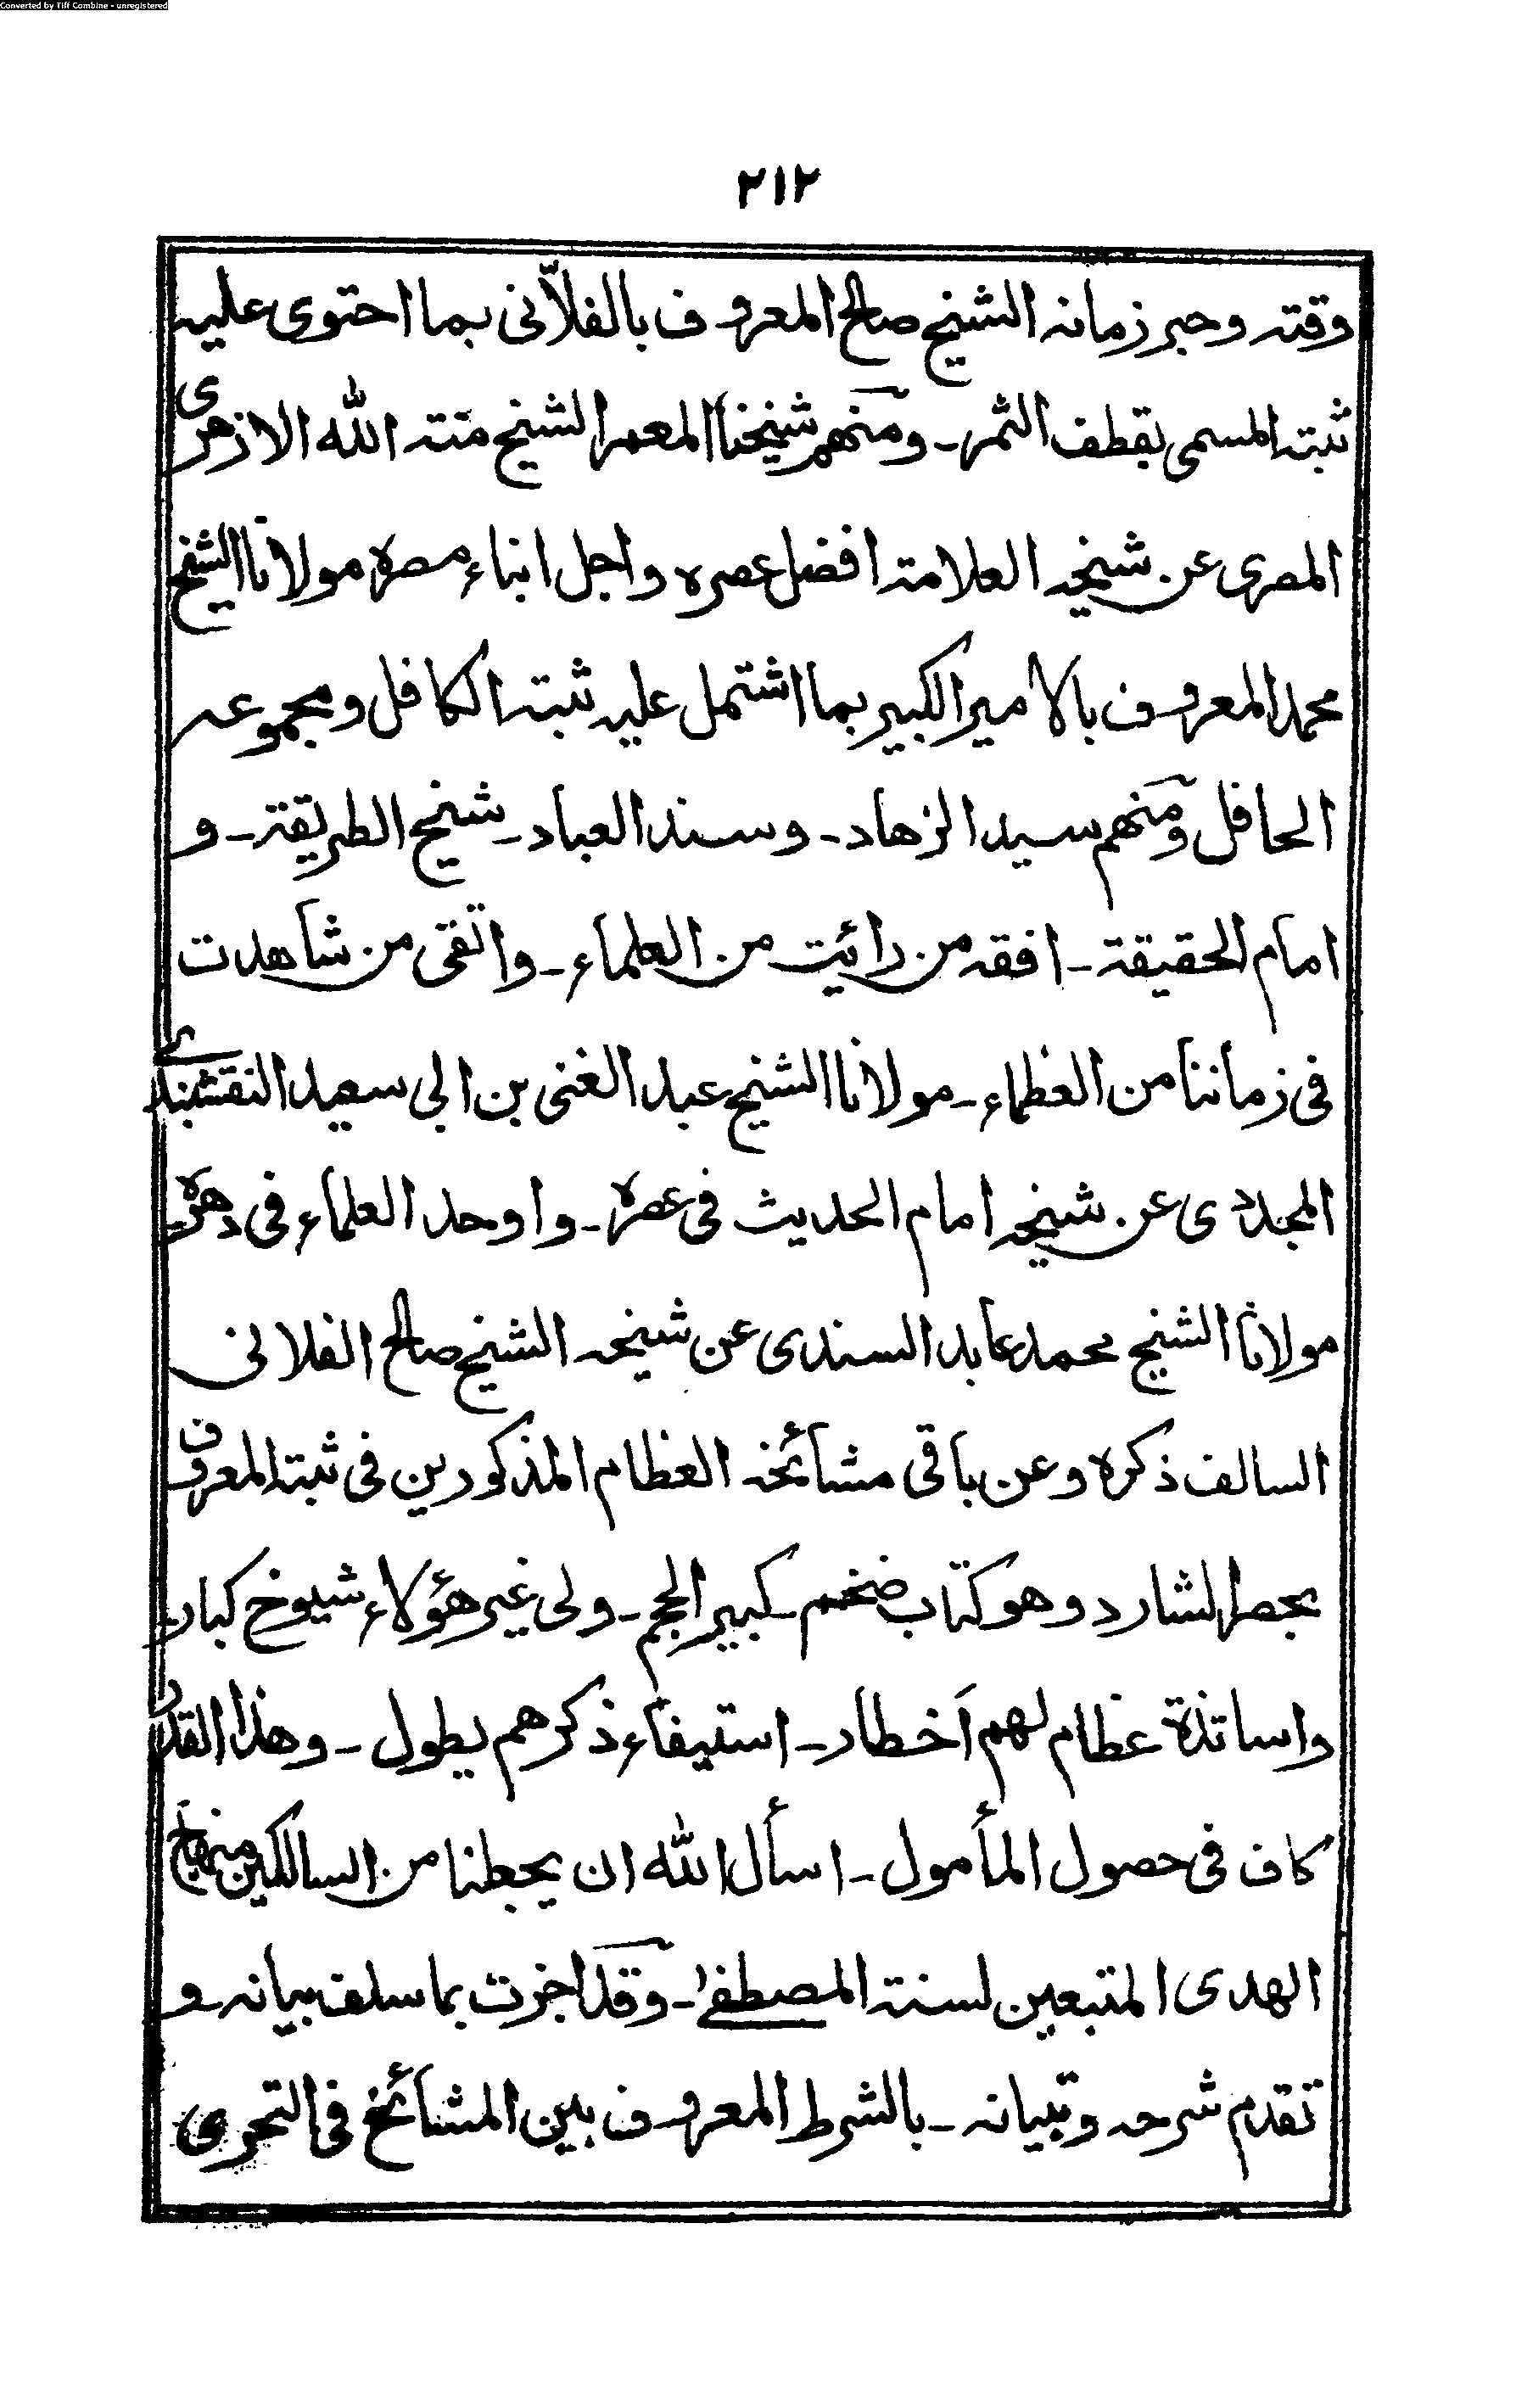 Converted by Tiff Combine - unregistered
٢١٢
وقته وحبر زمانه الشيخ صالح المعروف بالفلاّنى بما احتوى عليه
ثبته المسمى بقطف الثمر ـ ومنهم شيخنا المعمر الشيخ منته الله الازهرى
المصرى عن شيخه العلامة افضل عصره واجل ابناء مصره مولانا الشيخ
محمد المعروف بالامير الكبير بما اشتمل عليه ثبته الكافل ومجموعه
الحافل ومنهم سيد الزهاد ـ وسند العباد ـ شيخ الطريقة ـ و
امام الحقيقة ـ افقه من رائيت من العلماء ـ واتقى من شاهدت
فى زماننا من العظماء ـ مولانا الشيخ عبد الغنى بن ابى سعيد النقشبندى
المجددى عن شيخه امام الحديث فى عصره ـ واوحد العلماء فى دهره ـ
مولانا الشيخ محمد عابد السندى عن شيخه الشيخ صالح الفلانى
السالف ذكره وعن باقى مشائخه العظام المذكورين فى ثبته المعروف
بحصر الشارد وهو كتاب ضخم ـ كبير الحجم ـ ولى غير هؤلاء شيوخ كبار ـ
واساتذة عظام لهم اخطار ـ استيفاء ذكرهم يطول ـ وهذا القدر
كاف فى حصول المأمول ـ اسأل الله ان يجعلنا من السالكين منهاج
الهدى المتبعين لسنة المصطفى ـ وقد اجزت بما سلف بيانه ـ و
تقدم شرحه وتبيانه ـ بالشرط المعروف بين المشائخ فى التحرى